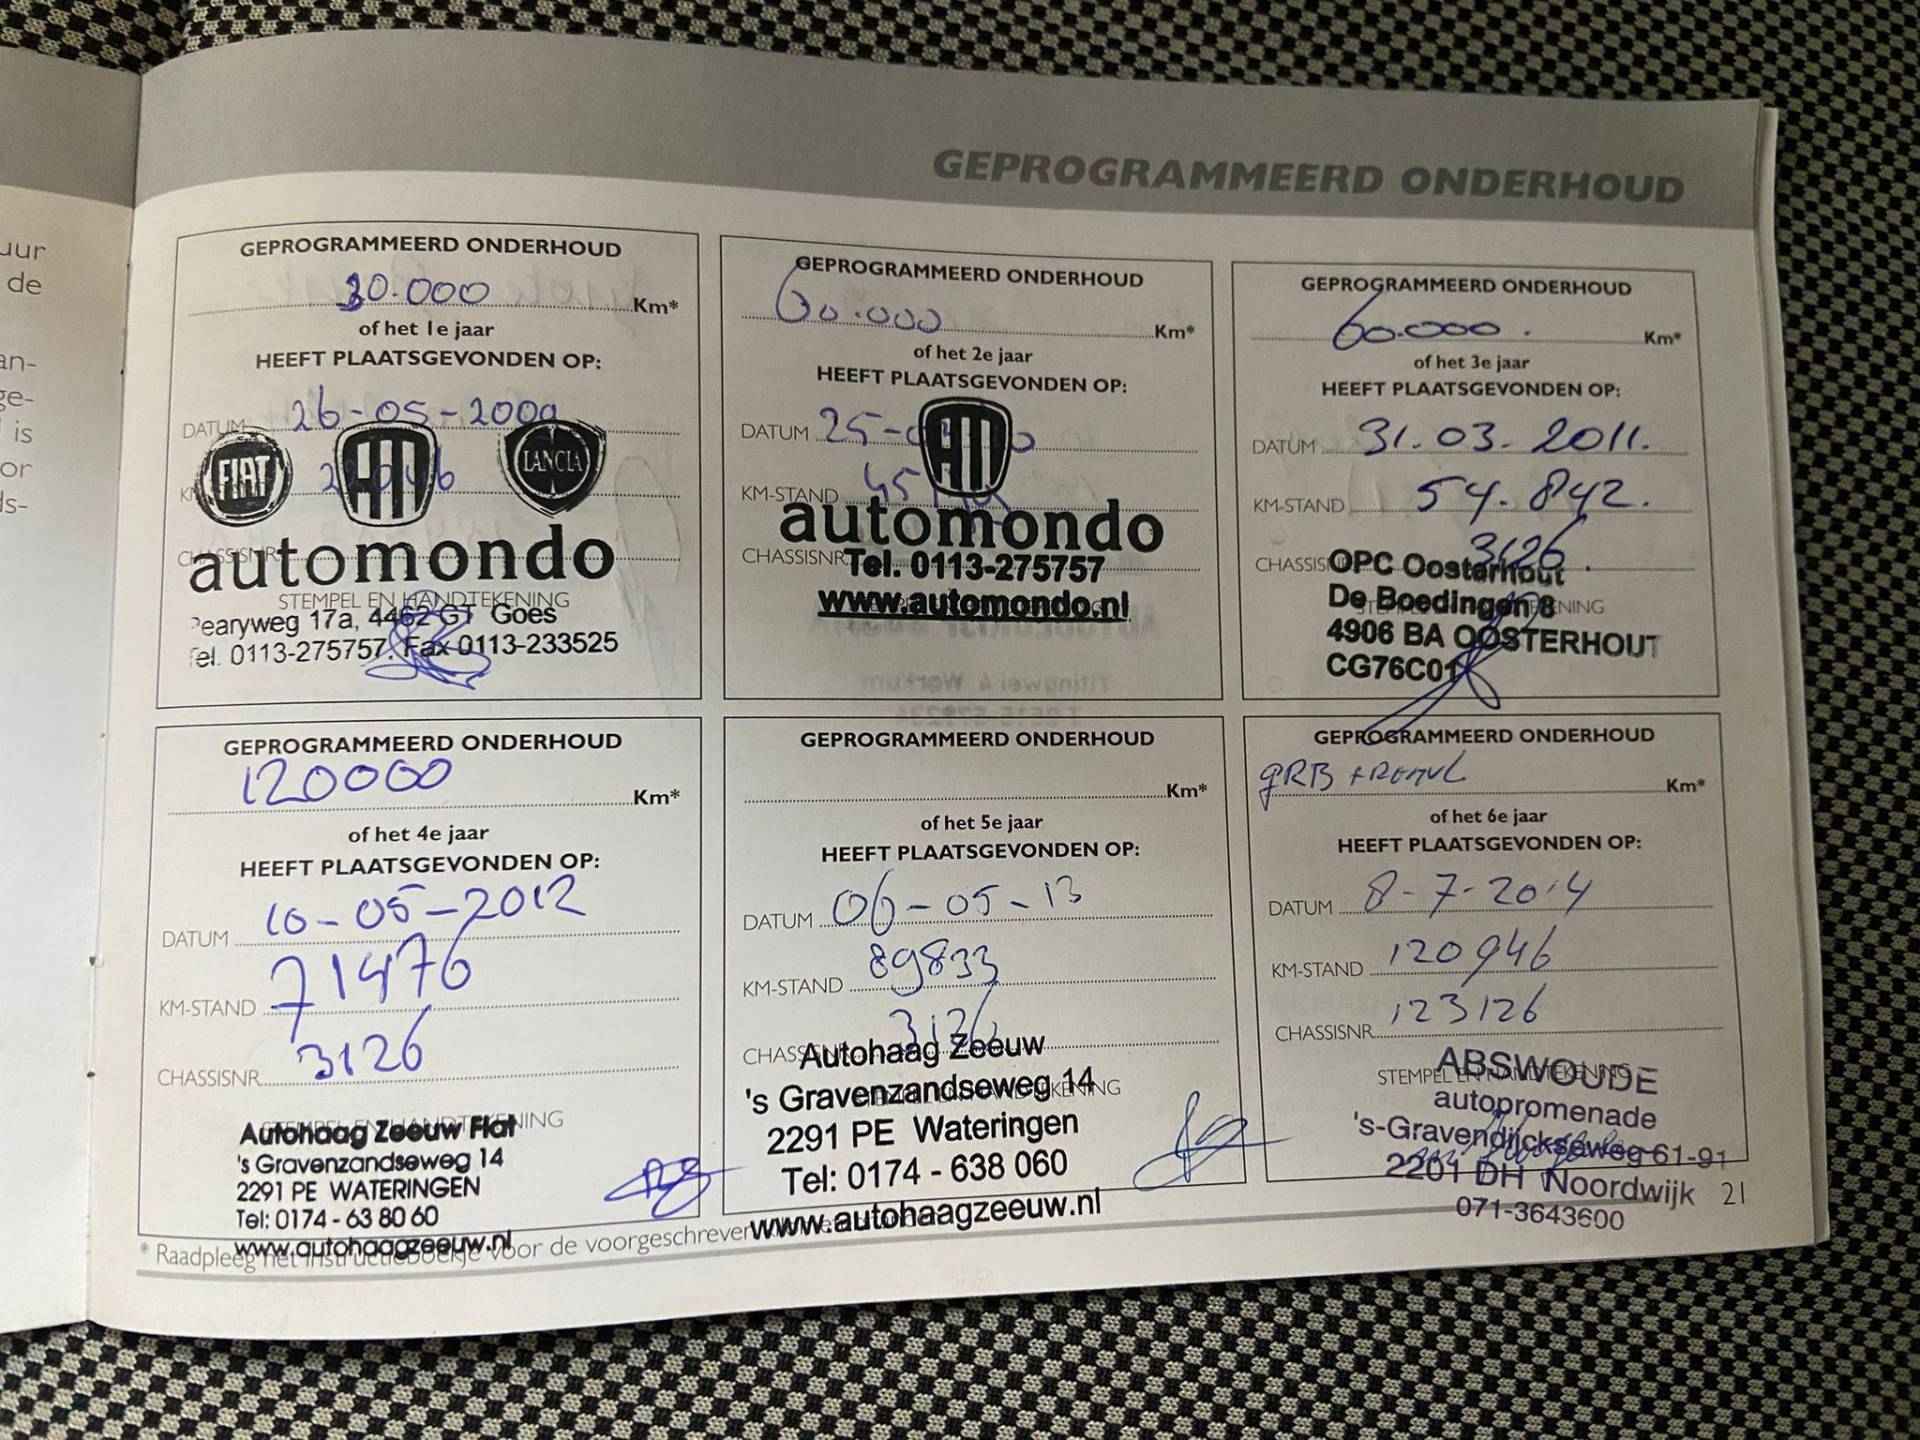 uur
de
an-
ge-
is
or
ds-
GEPROGRAMMEERD ONDERHOUD
GEPROGRAMMEERD ONDERHOUD
30.000 Km*
of het 1e jaar
HEEFT PLAATSGEVONDEN OP:
DATUM 26-05-2009
FIAT
LANCIA
CHASSISNR.
automondo
STEMPEL EN HANDTEKENING
Pearyweg 17a, 4462 GT Goes
Tel. 0113-275757. Fax 0113-233525
GEPROGRAMMEERD ONDERHOUD
60.000 Km*
of het 2e jaar
HEEFT PLAATSGEVONDEN OP:
DATUM 25-
KM-STAND 45
automondo
CHASSISNR.
Tel. 0113-275757
www.automondo.nl
GEPROGRAMMEERD ONDERHOUD
60.000. Km*
of het 3e jaar
HEEFT PLAATSGEVONDEN OP:
DATUM 31.03.2011.
KM-STAND 54.842.
CHASSISNR. 3126.
OPC Oosterhout
De Boedingen 8
4906 BA OOSTERHOUT
CG76C01
GEPROGRAMMEERD ONDERHOUD
120000 Km*
of het 4e jaar
HEEFT PLAATSGEVONDEN OP:
DATUM 10-05-2012
KM-STAND 71476
CHASSISNR. 3126
STEMPEL EN HANDTEKENING
Autohaag Zeeuw Fiat
's Gravenzandseweg 14
2291 PE WATERINGEN
Tel: 0174 - 63 80 60
www.autohaagzeeuw.nl
GEPROGRAMMEERD ONDERHOUD
Km*
of het 5e jaar
HEEFT PLAATSGEVONDEN OP:
DATUM 06-05-13
KM-STAND 89833
CHASSISNR. 3126
Autohaag Zeeuw
's Gravenzandseweg 14
2291 PE Wateringen
Tel: 0174 - 638 060
www.autohaagzeeuw.nl
GEPROGRAMMEERD ONDERHOUD
gRB Km*
of het 6e jaar
HEEFT PLAATSGEVONDEN OP:
DATUM 8-7-2014
KM-STAND 120946
CHASSISNR. 123126
STEMPEL EN HANDTEKENING
ABSWOUDE
autopromenade
's-Gravendijckseweg 61-91
2201 DH Noordwijk
071-3643600
* Raadpleeg het instructieboekje voor de voorgeschreven
21